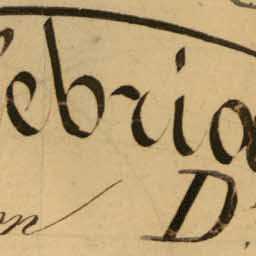 ebria
on D.